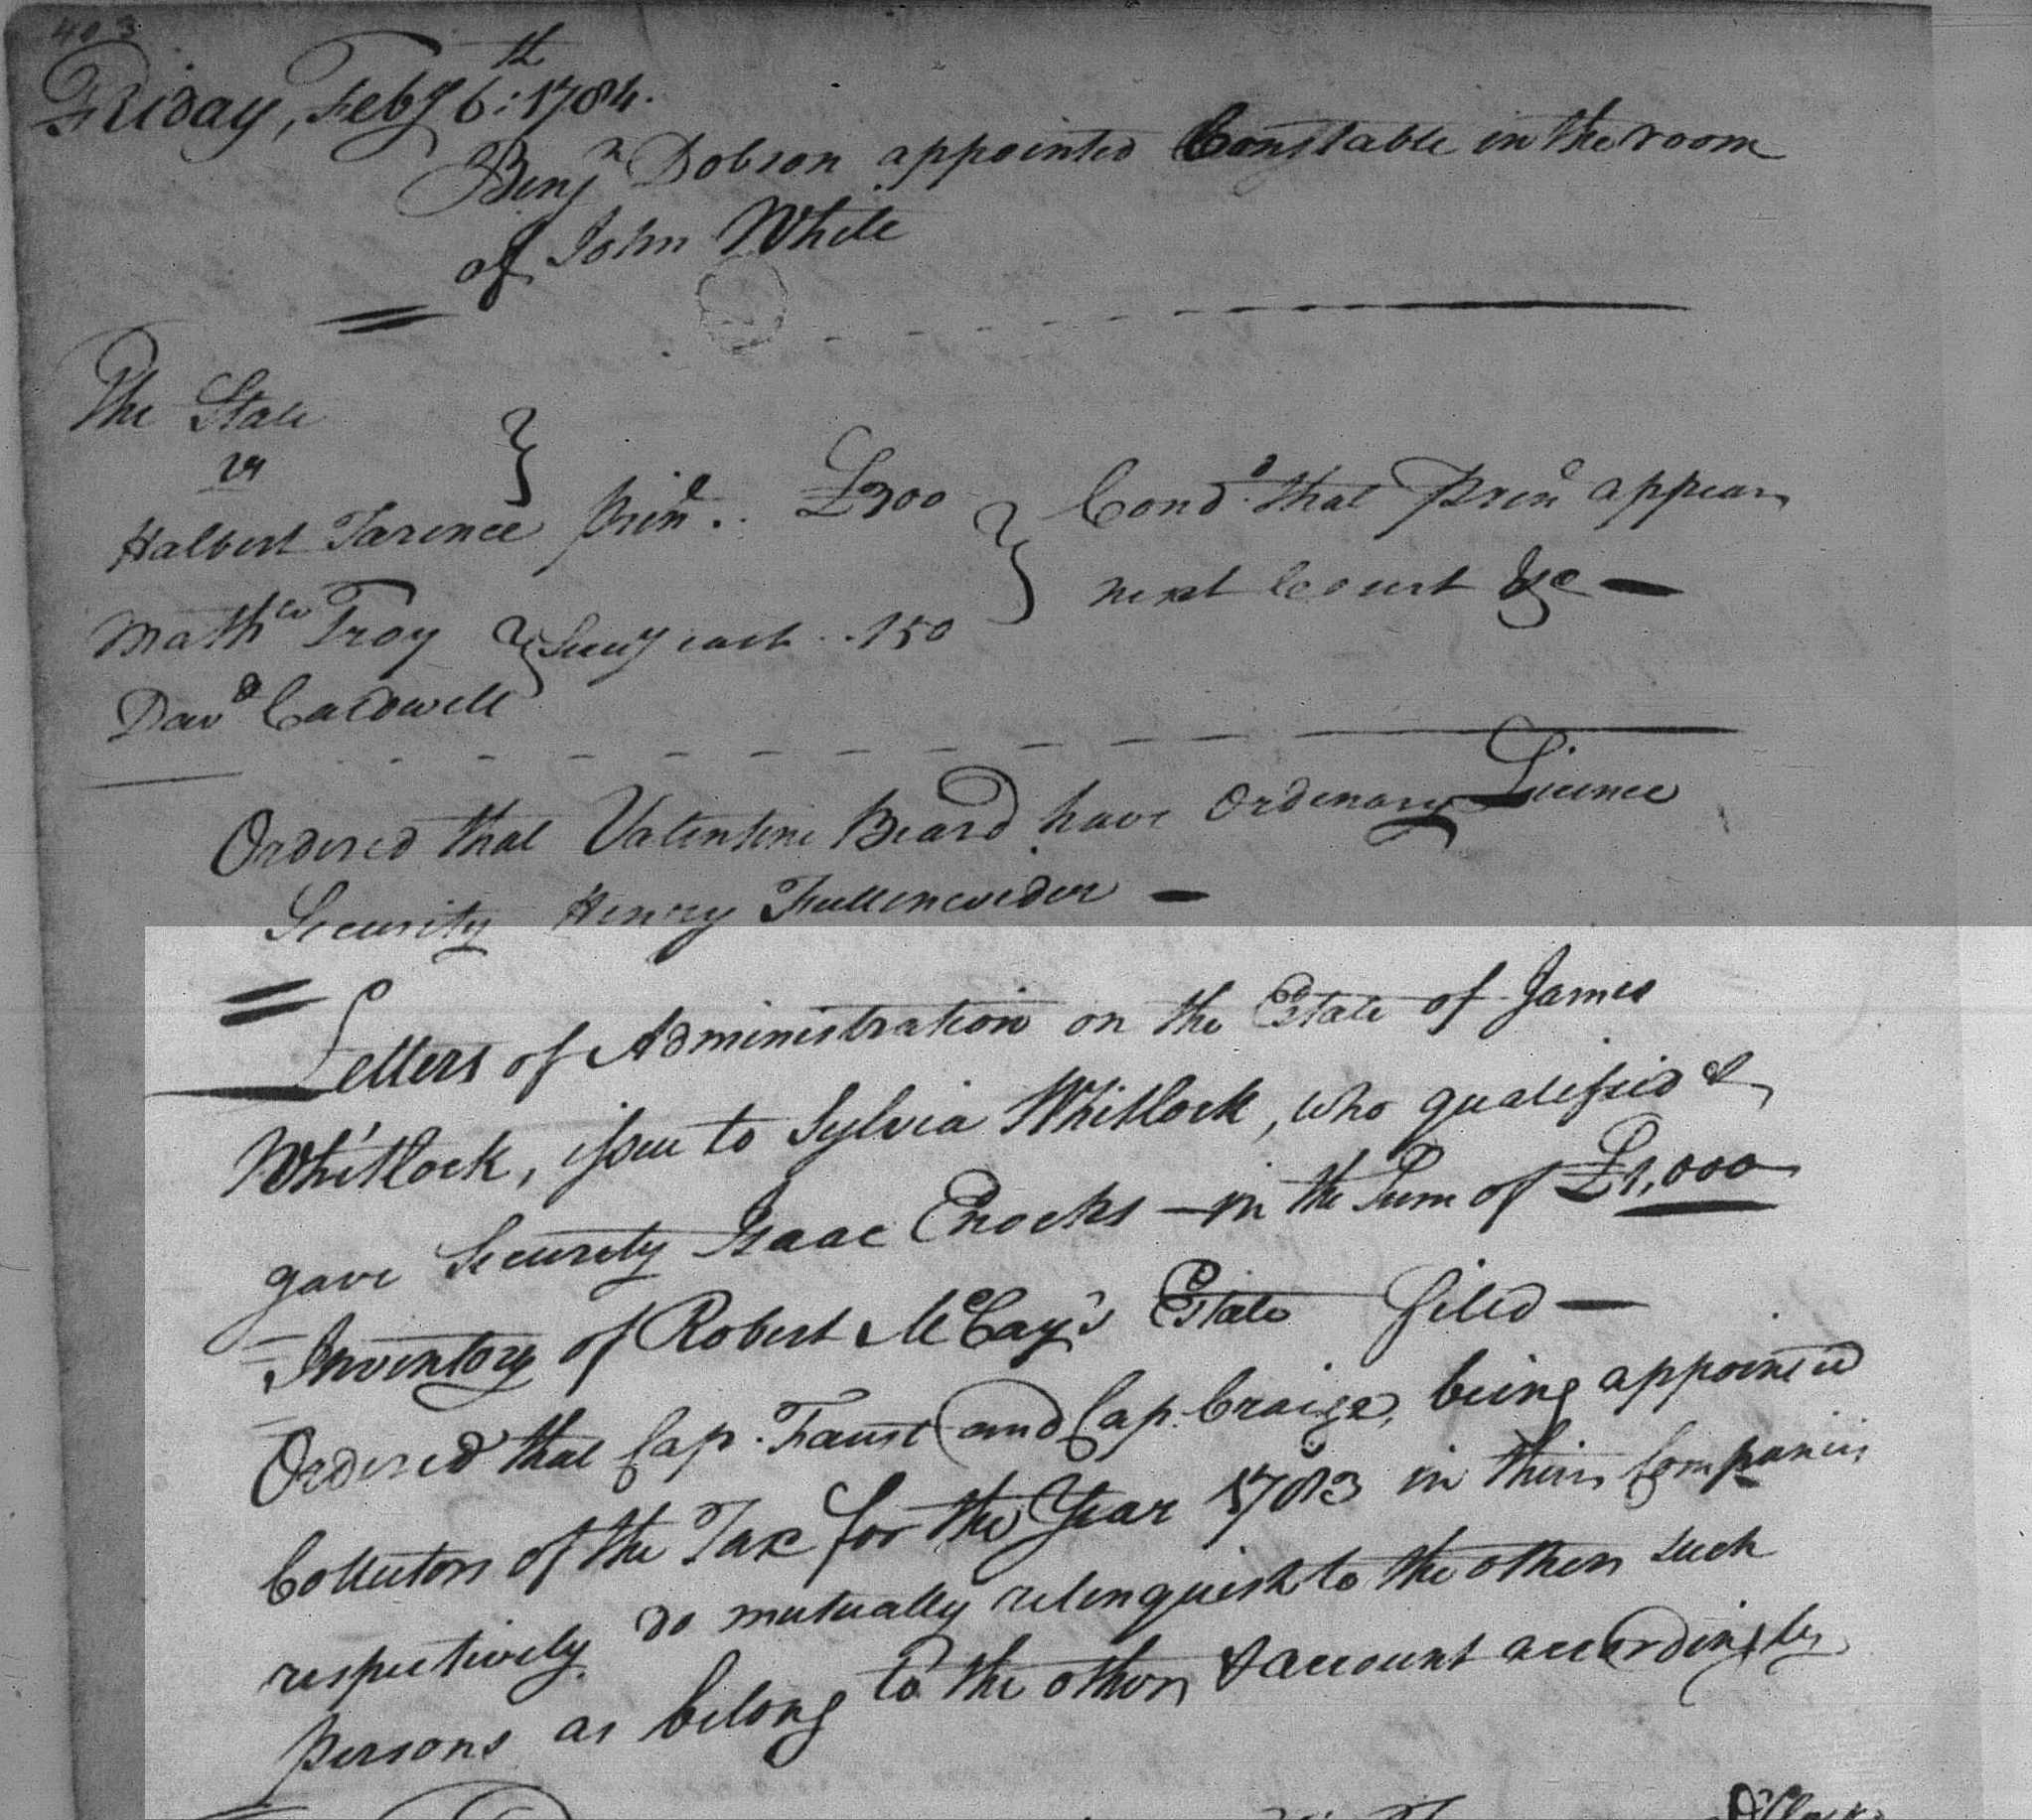 403
Friday, Feby 6th: 1784.
Benjn Dobson appointed Constable in the room
of John White
The State
vs
Halbert Tarence prinl. . £300
Condd. that Prinl appear
next Court &c —
Mathew Troy
Secuy each . . 150
Davd Caldwell
Ordered that Valentine Beard have Ordenary Licence
Security Henry Fullenwider —
Letters of Administration on the Estate of James
Whitlock, issue to Sylvia Whitlock, who qualified &
gave Security Isaac Enochs — in the Sum of £1,000
Inventory of Robert McCay's Estate filed —
Ordered that Cap. Faust and Cap. Craige, being appointed
Collectors of the Tax for the Year 1783 in their Companies
respectively do mutually relinquish to the other such
persons as belong to the other & account accordingly
O'Clock